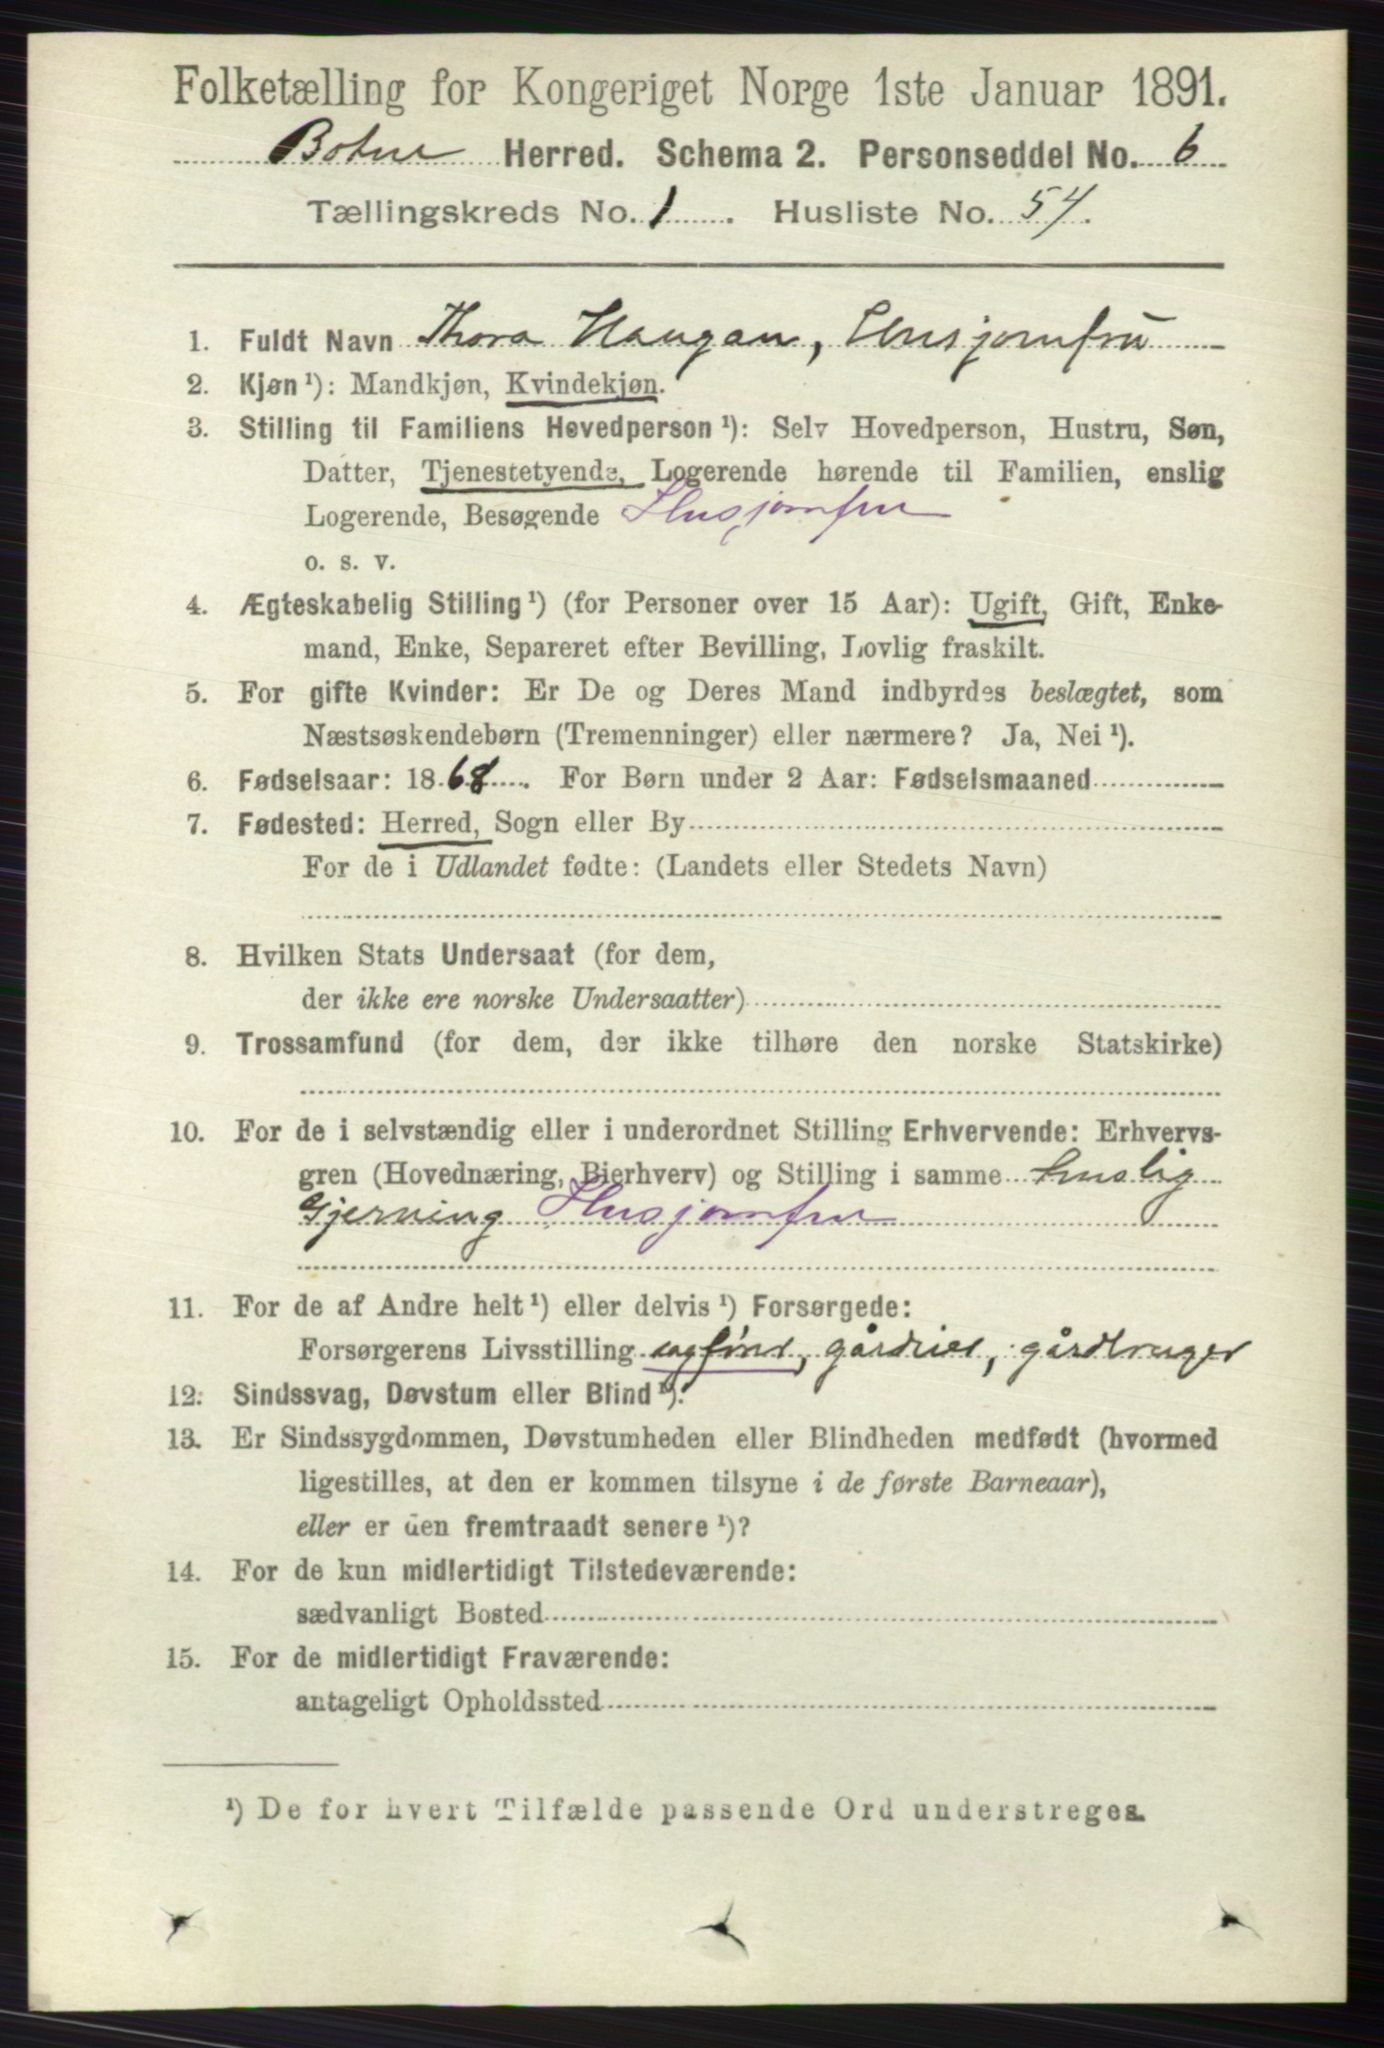 Folketælling for Kongeriget Norge 1ste Januar 1891.
Botne Herred. Schema 2. Personseddel No. 6
Tællingskreds No. 1. Husliste No. 54.
1. Fuldt Navn Thora Haugan, Husjomfru
2. Kjøn ¹): Mandkjøn, Kvindekjøn.
3. Stilling til Familiens Hovedperson ¹): Selv Hovedperson, Hustru, Søn,
Datter, Tjenestetyende, Logerende hørende til Familien, enslig
Logerende, Besøgende Husjomfru
o. s. v.
4. Ægteskabelig Stilling ¹) (for Personer over 15 Aar): Ugift, Gift, Enke-
mand, Enke, Separeret efter Bevilling, Lovlig fraskilt.
5. For gifte Kvinder: Er De og Deres Mand indbyrdes beslægtet, som
Næstsøskendebørn (Tremenninger) eller nærmere? Ja, Nei ¹).
6. Fødselsaar: 1868. For Børn under 2 Aar: Fødselsmaaned
7. Fødested: Herred, Sogn eller By
For de i Udlandet fødte: (Landets eller Stedets Navn)
8. Hvilken Stats Undersaat (for dem,
der ikke ere norske Undersaatter)
9. Trossamfund (for dem, der ikke tilhøre den norske Statskirke)
10. For de i selvstændig eller i underordnet Stilling Erhvervende: Erhvervs-
gren (Hovednæring, Bierhverv) og Stilling i samme huslig
Gjerning Husjomfru
11. For de af Andre helt ¹) eller delvis ¹) Forsørgede:
Forsørgerens Livsstilling gårdbruger
12. Sindssvag, Døvstum eller Blind ¹).
13. Er Sindssygdommen, Døvstumheden eller Blindheden medfødt (hvormed
ligestilles, at den er kommen tilsyne i de første Barneaar),
eller er den fremtraadt senere ¹)?
14. For de kun midlertidigt Tilstedeværende:
sædvanligt Bosted
15. For de midlertidigt Fraværende:
antageligt Opholdssted
¹) De for hvert Tilfælde passende Ord understreges.